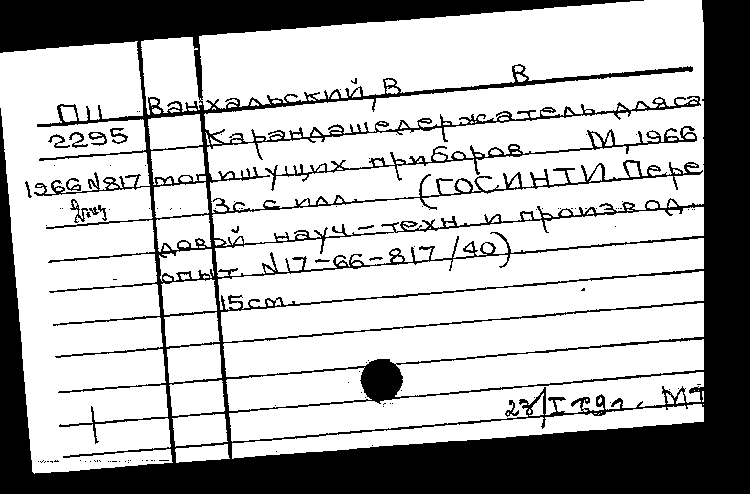 ПЦ Ванхальский, В В
2295 Карандашедержатель для са
1966 №817 мопишущих приборов. М, 1966
3с. с илл. (ГОСИНТИ. Пере
довой науч.-техн. и производ.
опыт. №17-66-817/40)
15см.
МТ